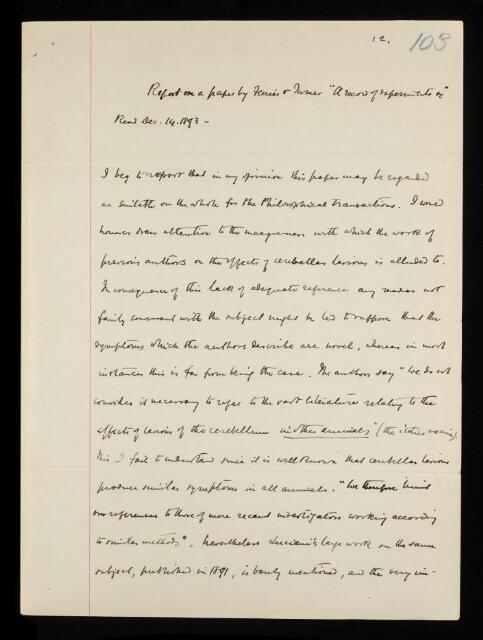 12. 103
Report on a paper by Ferrier & Turner "A record of experiments &c"
Read Dec. 14. 1893 –
I beg to report that in my opinion this paper may be regarded
as suitable on the whole for the Philosophical Transactions. I would
however draw attention to the meagreness with which the work of
previous authors on the effects of cerebellar lesions is alluded to.
In consequence of this lack of adequate reference any reader not
fairly conversant with the subject might be led to suppose that the
symptoms which the authors describe are novel, whereas in most
instances this is far from being the case. The authors say "We do not
consider it necessary to refer to the vast literature relating to the
effects of lesions of the cerebellum in other animals" (the italics are mine).
This I fail to understand since it is well known that cerebellar lesions
produce similar symptoms in all animals. "We therefore limit
our references to those of more recent investigators working according
to similar methods". Nevertheless Luciani's large work on the same
subject, published in 1891, is barely mentioned, and the very im-